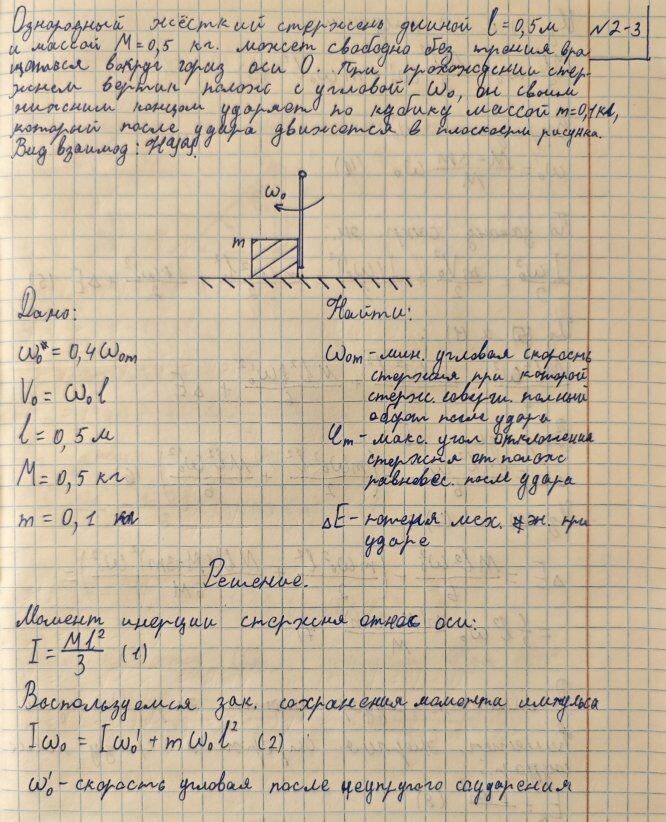 Однородный жёсткий стержень длиной l = 0,5 м
N2-3
и массой M = 0,5 кг. может свободно без трения вра
щаться вокруг гориз оси О. При прохождении стер-
жнем вертик полож с угловой ω₀, он своим
нижним концом ударяет по кубику массой m=0,1кг,
который после удара движется в плоскости рисунка.
Вид взаимод: НУУ.
ω₀
m
Дано:
Найти:
ω₀* = 0,4ω₀m
ω₀m - мин. угловая скорость
стержня при которой
V₀ = ω₀l
стерж. соверш. полный
оборот после удара
l = 0,5 м
φm - макс. угол отклонения
стержня от полож
M = 0,5 кг
равновес. после удара
m = 0,1 кг
ΔE - потеря мех. эн. при
ударе
Решение.
Момент инерции стержня относ оси:
I = Ml²/3 (1)
Воспользуемся зак. сохранения момента импульса
Iω₀ = Iω₀' + mω₀l² (2)
ω₀' - скорость угловая после неупругого соударения